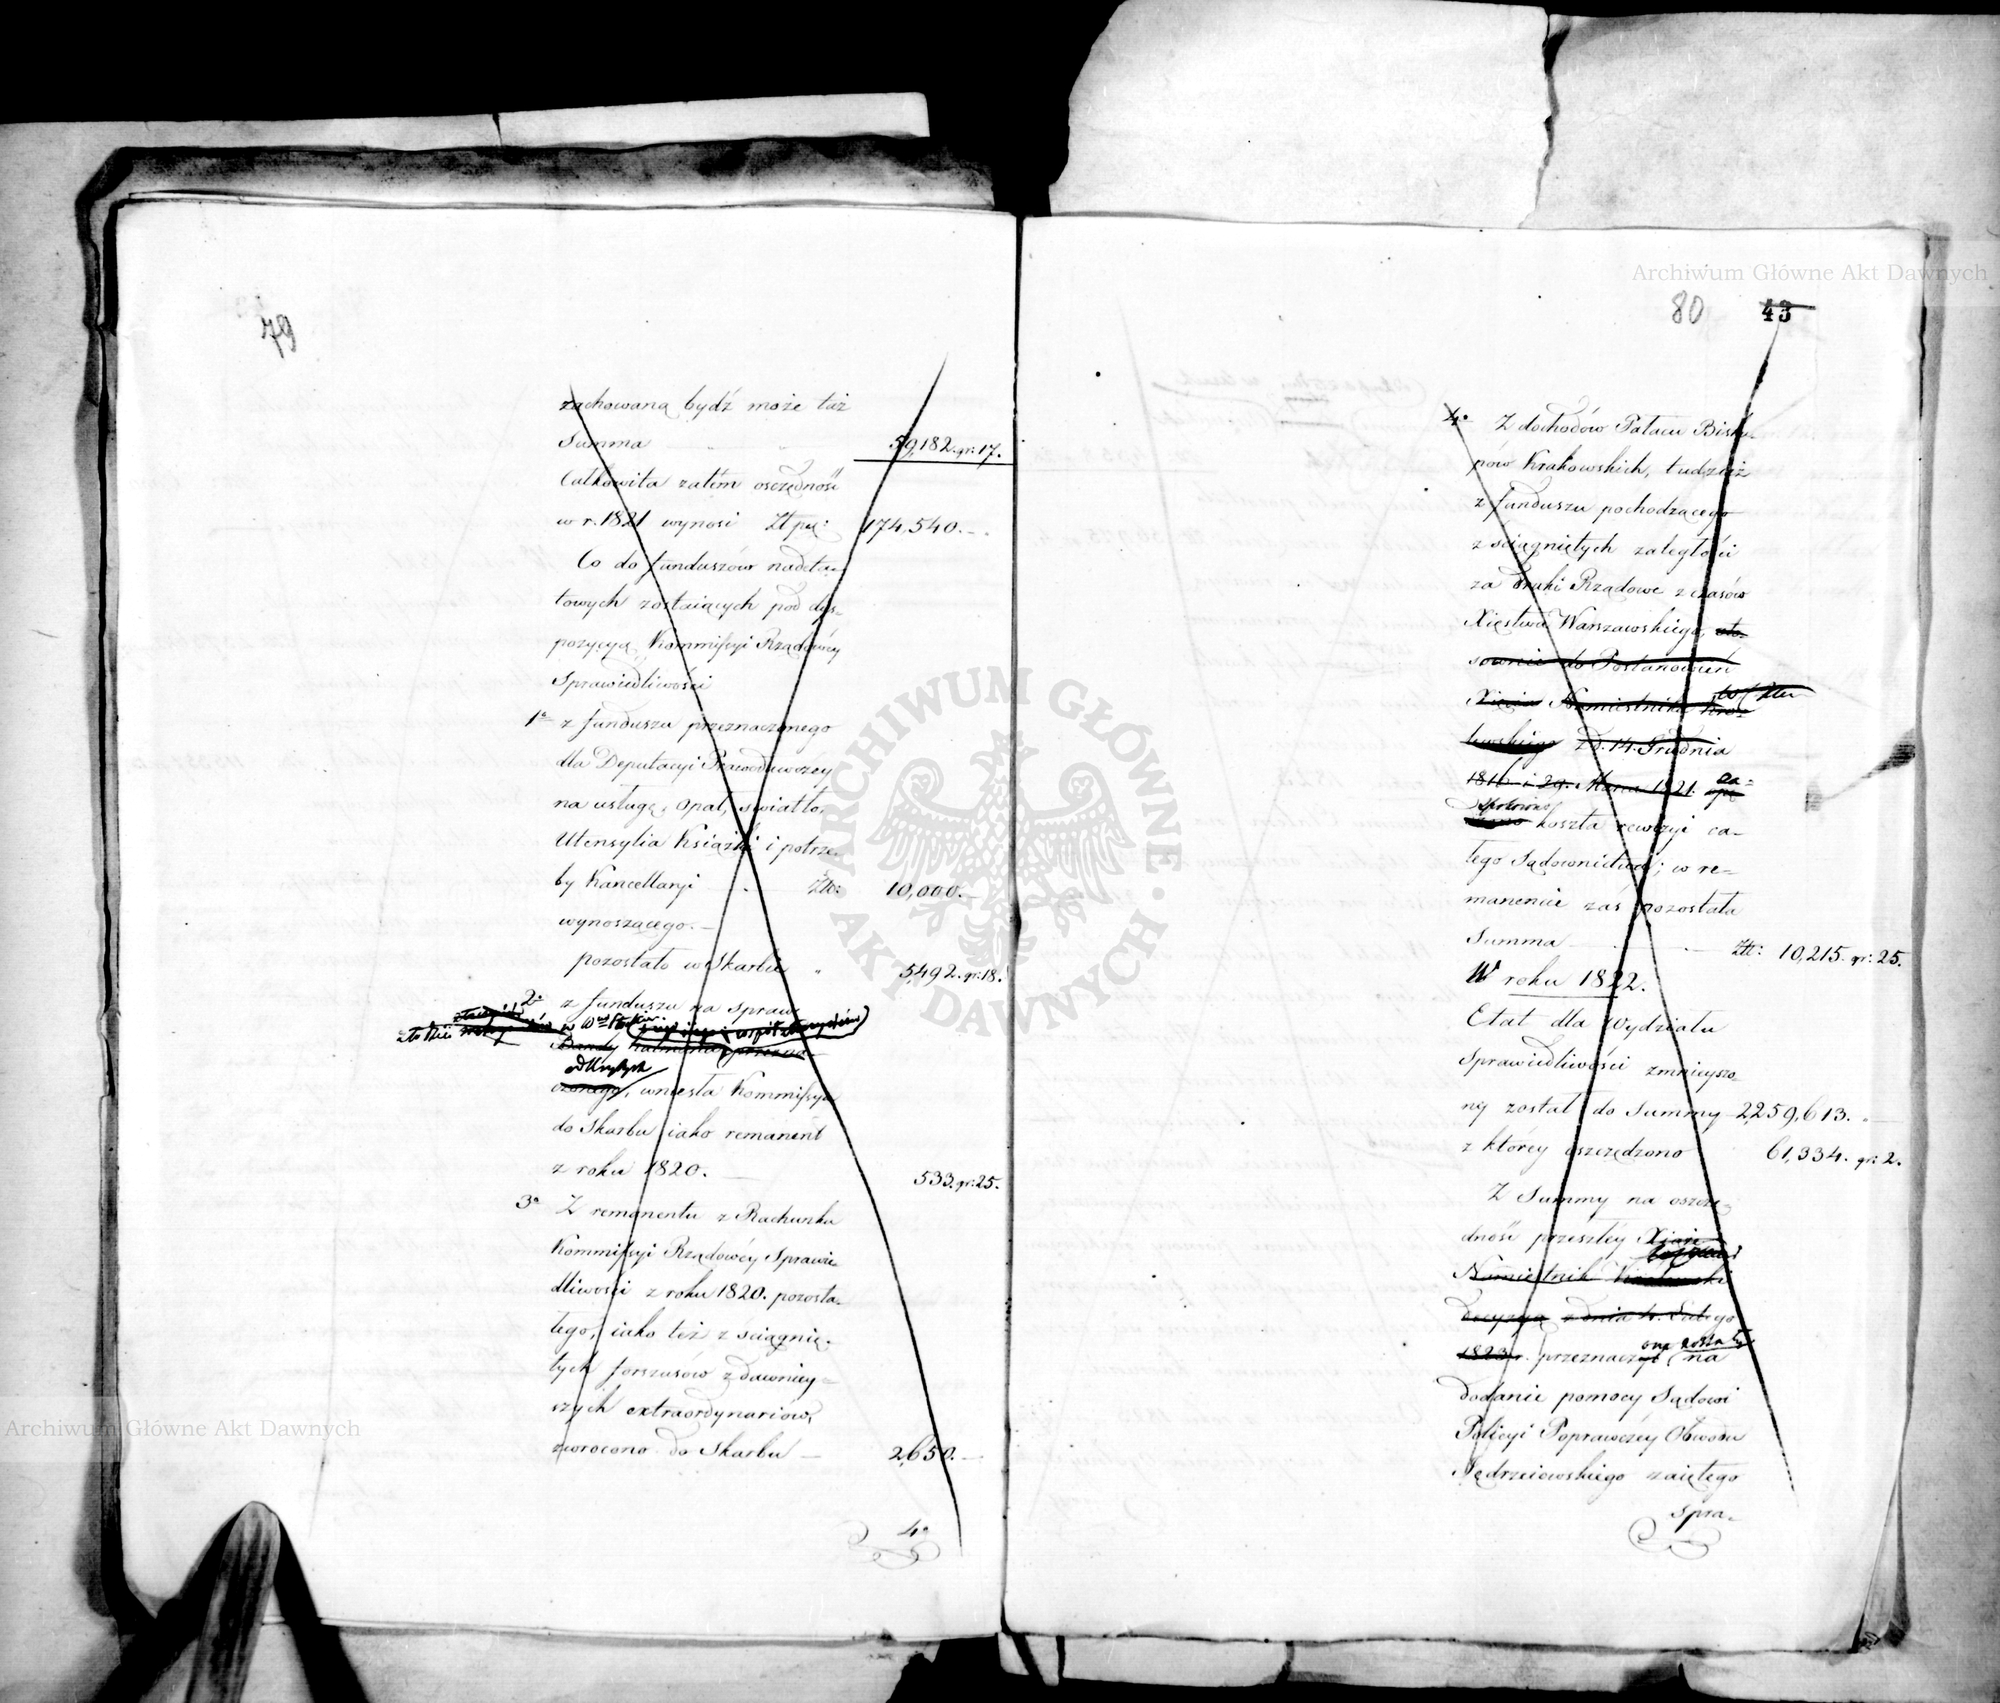 79
zachowaną bydź może taż
Summa 59,182. gr: 17.
Całkowita zatém oszczędność
w r. 1821 wynosi Złpp: 174,540.—
Co do funduszów nadeta-
towych zostaiących pod dys-
pozycyą Kommissyi Rządowéy
Sprawiedliwości
1° z funduszu przeznaczonego
dla Deputacyi Prawodawczey
na usługę, opał, światło,
Utensylia Książki i potrze-
by Kancellaryi Złł: 10,000.—
wynoszącego.—
pozostało w Skarbie " 5,492. gr: 18.
2° z funduszu na spraw
Bandy przezna-
odkrytych
czonego, wniosła Kommissya
do Skarbu iako remanent
z roku 1820. — 533. gr: 25.
3° Z remanentu z Rachunku
Kommissyi Rządowéy Sprawie-
dliwości z roku 1820. pozosta-
łego, iako też z ściągnię-
tych forszusów z dawniey-
szych extraordynariów,
zwrócono do Skarbu — 2,650.—
4°
Archiwum Główne Akt Dawnych
80 43
4° Z dochodów Pałacu Bisku-
pów Krakowskich, tudzież
z funduszu pochodzącego
z ściągniętych zaległości
za druki Rządowe z czasów
Xięstwa Warszawskiego, sto-
sownie do Postanowień
Xięcia Namiestnika Kró-
lewskiego z d. 14. Grudnia
1816 i 29. Marca 1821. za-
koszta rewizyi ca-
łego Sądownictwa; w re-
manencie zaś pozostała
Summa — Złł: 10,215. gr: 25.
W roku 1822.
Etat dla Wydziału
Sprawiedliwości zmnieyszo-
ny został do Summy 2,259,613. "—
z którey oszczędzono 61,334. gr: 2.
Z Summy na oszczę-
dność przeszłéy Xiąże
Namiestnik Królewski
decyzyą z dnia 4. Lutego
została
1823 r. przeznaczył na
dodanie pomocy Sądowi
Policyi Poprawczéy Obwodu
Jędrzeiowskiego zaiętego
spra-
Archiwum Główne Akt Dawnych
ARCHIWUM GŁÓWNE · AKT DAWNYCH ·